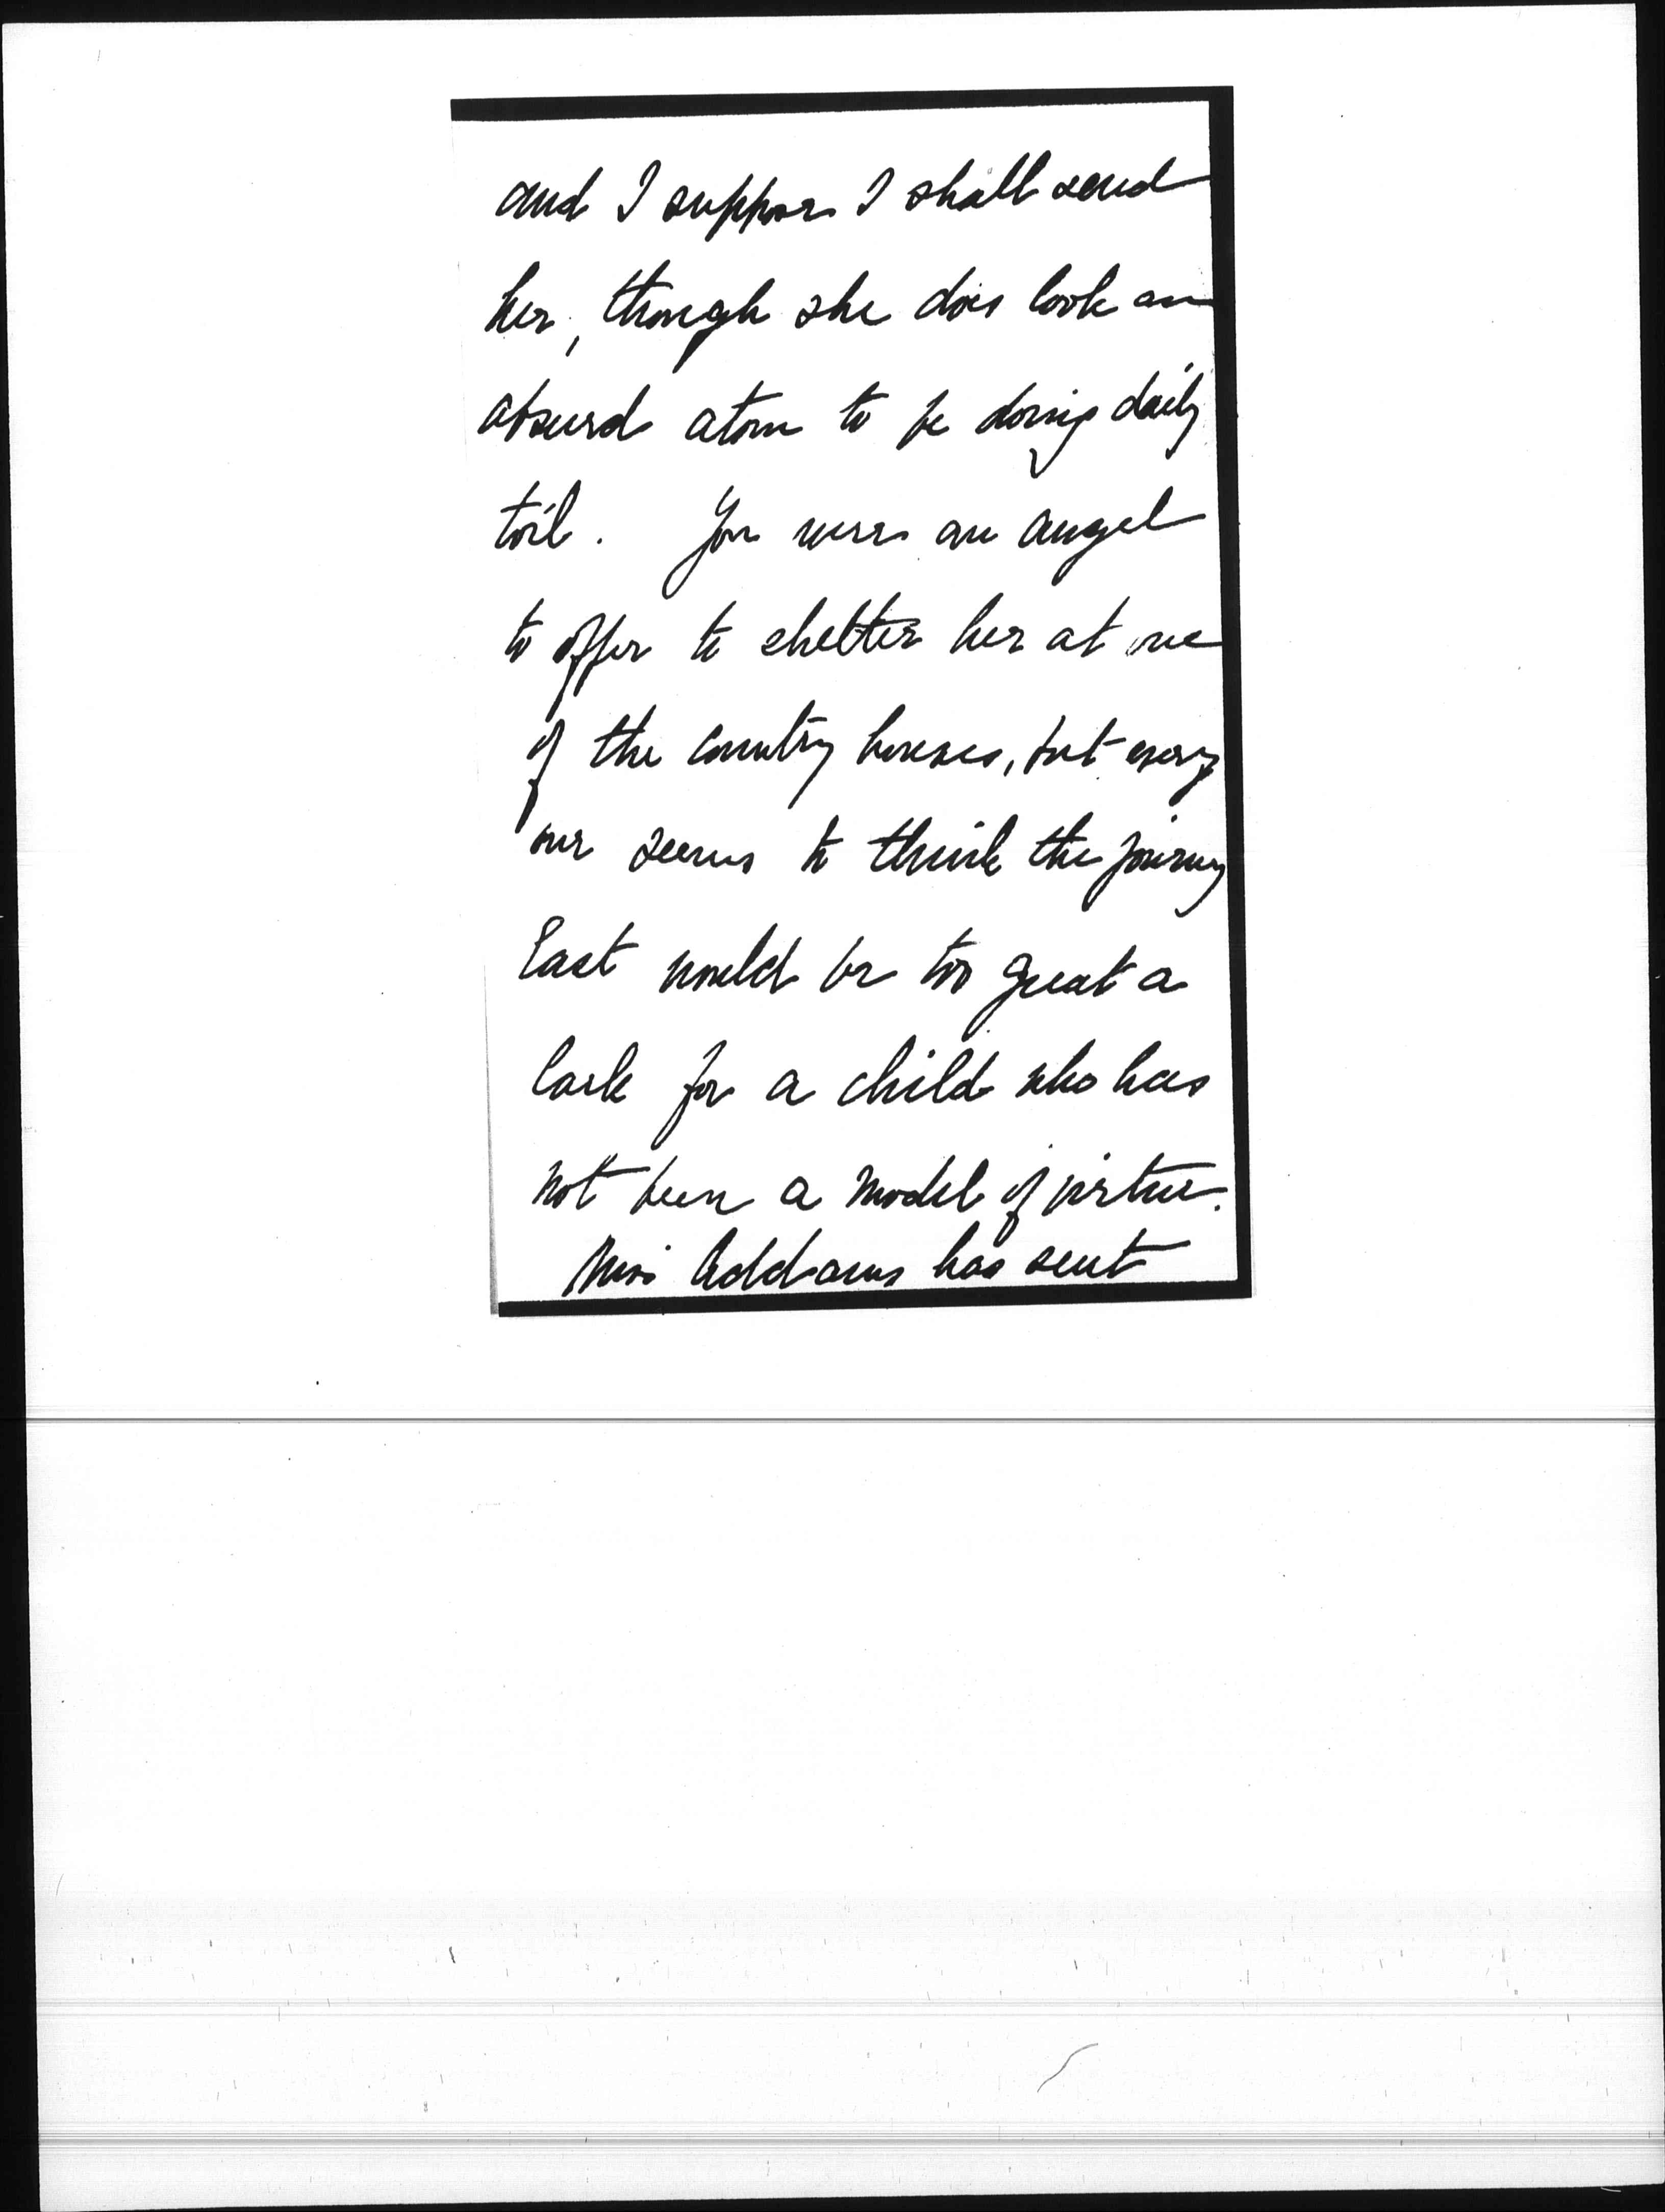 and I suppose I shall send
her, though she does look an
absurd atom to be doing daily
toil. You were an angel
to offer to shelter her at one
of the country houses, but every
one seems to think the journey
East would be too great a
lark for a child who has
not been a model of virtue.
Miss Addams has sent